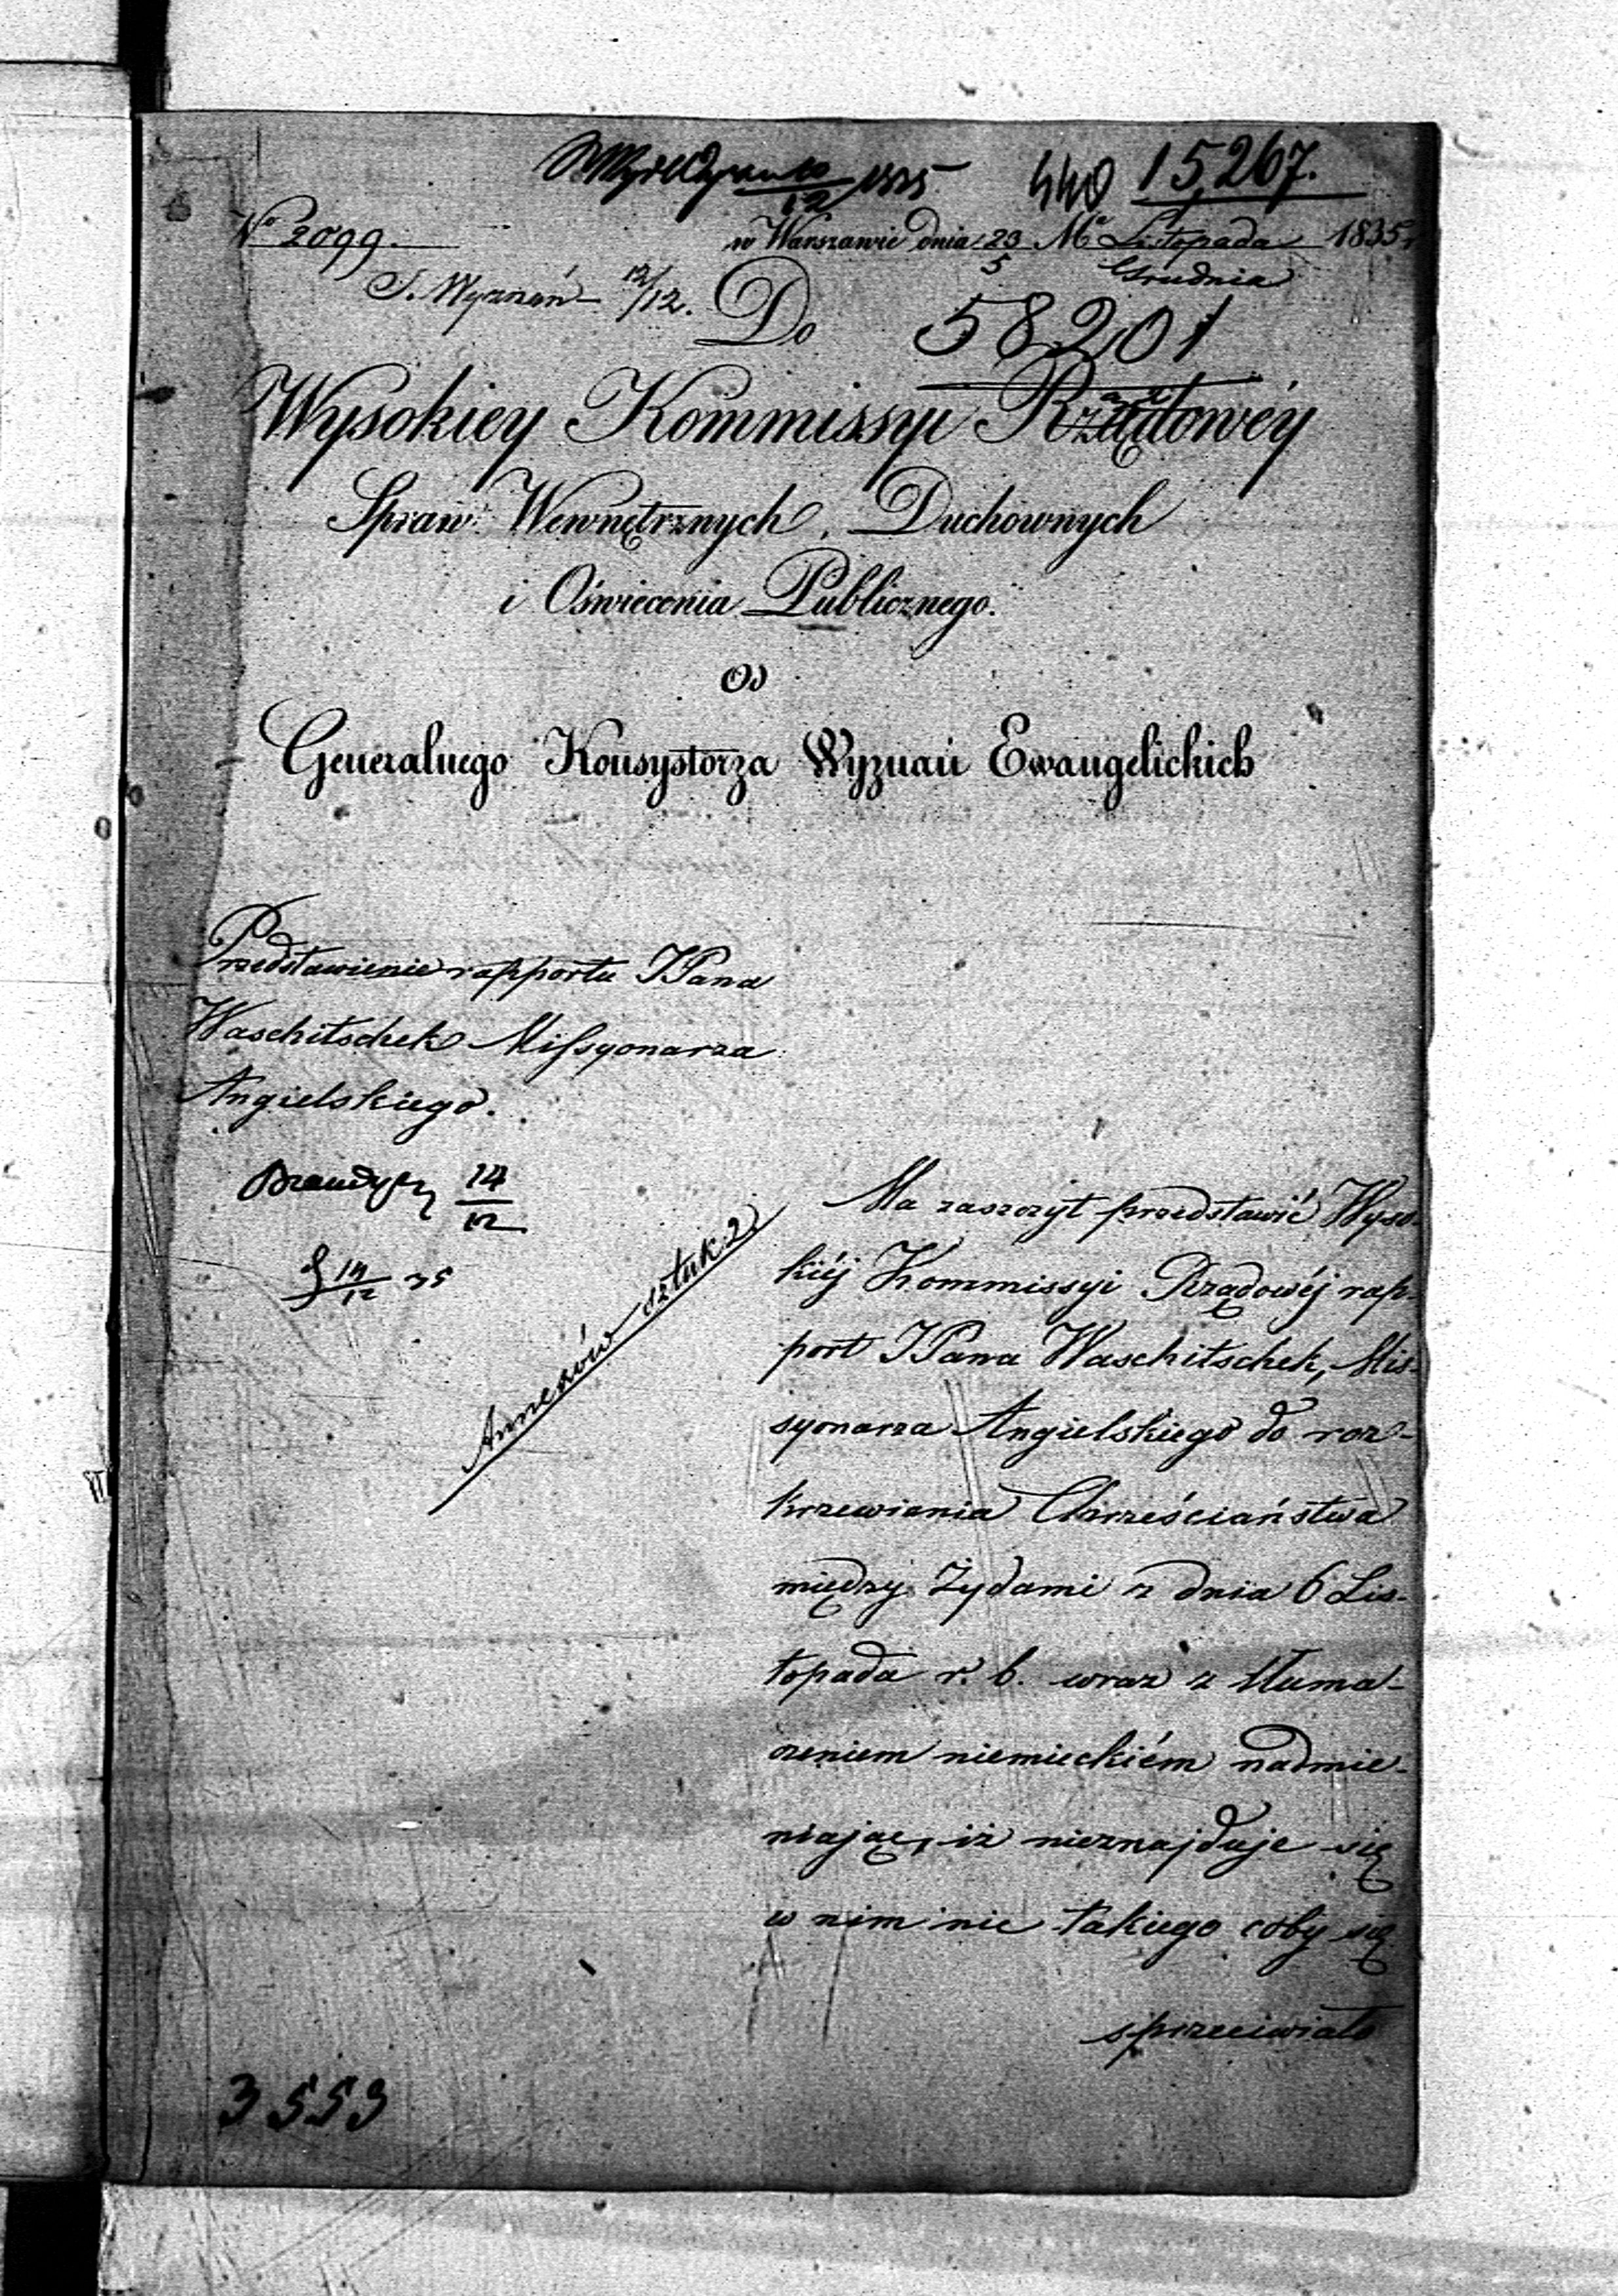 1835
440 15,267.
No 2099.
w Warszawie dnia 23 Ma Listopada 1835 r
5 Grudnia
S. Wyznań 12/12.
Do
58201
Wysokiey Kommissyi Rządowéy
Spraw Wewnętrznych, Duchownych
i Oświecenia Publicznego.
Od
Generalnego Konsystorza Wyznań Ewangelickich
Przedstawienie rapportu JPana
Waschitschek Missyonarza
Angielskiego.
14/12
14/12 35
Annexów sztuk 2
Ma zaszczyt przedstawić Wyso-
kiéj Kommissyi Rządowéj rap-
port JPana Waschitschek, Mis-
syonarza Angielskiego do roz-
krzewiania Chrześciaństwa
między Żydami z dnia 6 Lis-
topada r. b. wraz z tłuma-
czeniem niemieckiém nadmie-
niając, iż nieznajduje się
w nim nic takiego coby się
sprzeciwiało
3553